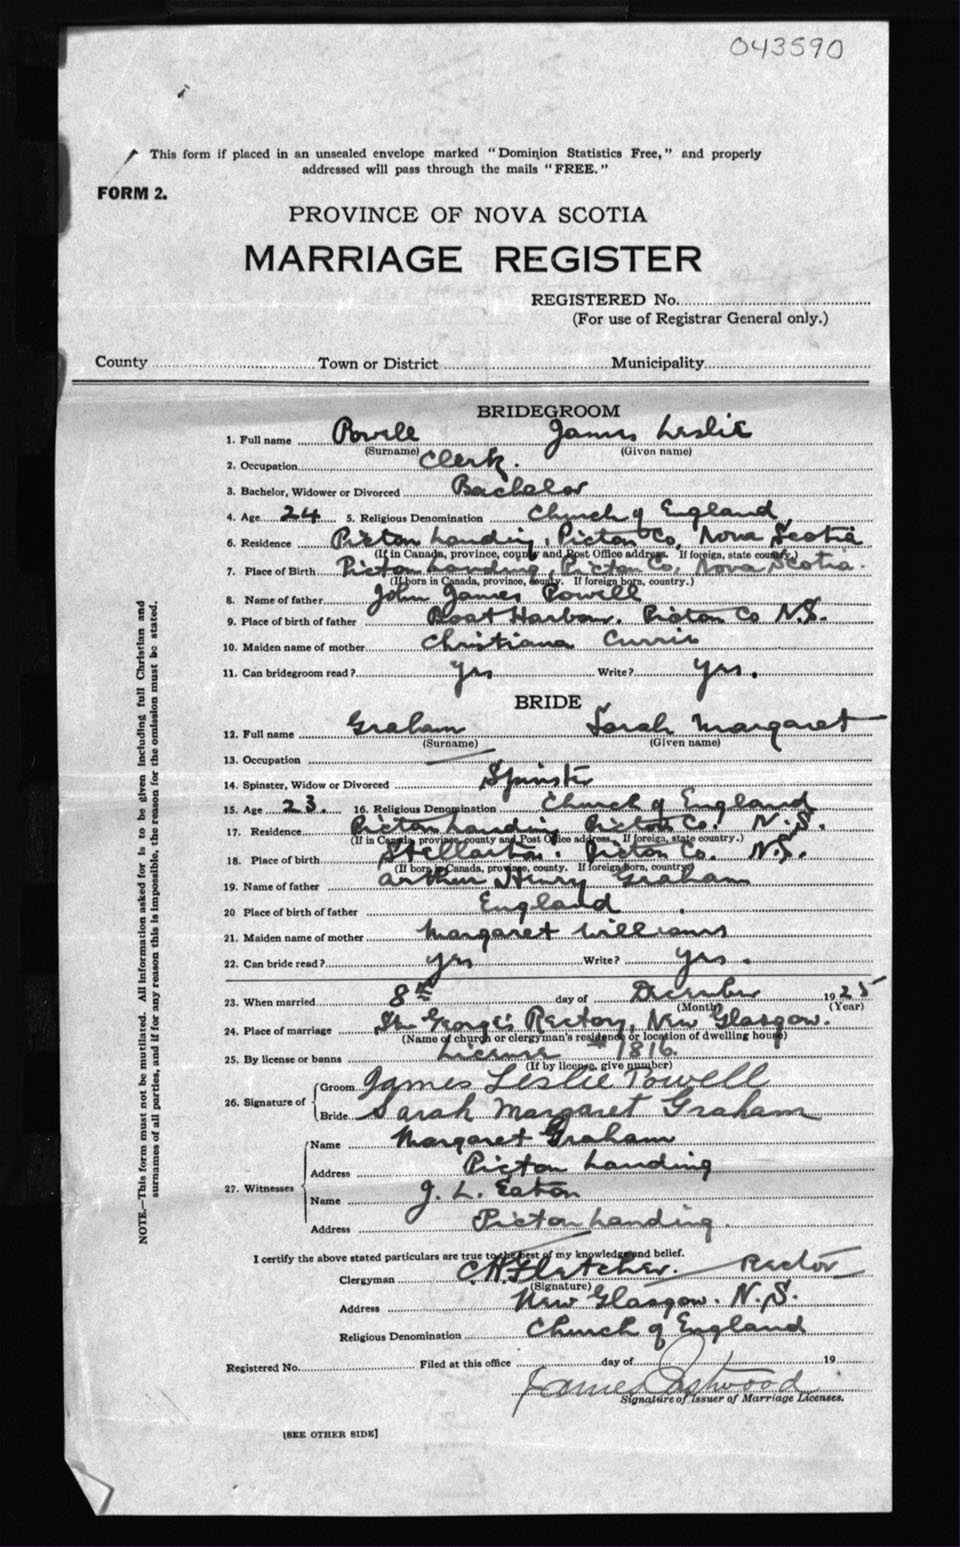 043590
This form if placed in an unsealed envelope marked "Dominion Statistics Free," and properly
addressed will pass through the mails "FREE."
FORM 2.
PROVINCE OF NOVA SCOTIA
MARRIAGE REGISTER
REGISTERED No.
(For use of Registrar General only.)
County Town or District Municipality
BRIDEGROOM
1. Full name Powell James Leslie
(Surname) (Given name)
2. Occupation Clerk.
3. Bachelor, Widower or Divorced Bachelor
4. Age 24 5. Religious Denomination Church of England
6. Residence Pictou Landing, Pictou Co, Nova Scotia
(If in Canada, province, county and Post Office address. If foreign, state country.)
7. Place of Birth Pictou Landing, Pictou Co. Nova Scotia.
(If born in Canada, province, county. If foreign born, country.)
8. Name of father John James Powell
9. Place of birth of father Boat Harbour. Pictou Co N.S.
10. Maiden name of mother Christiana Currie
11. Can bridegroom read? Yes Write? Yes.
BRIDE
12. Full name Graham Sarah Margaret
(Surname) (Given name)
13. Occupation
14. Spinster, Widow or Divorced Spinster
15. Age 23. 16. Religious Denomination Church of England
17. Residence Pictou Landing Pictou Co. N.S.
(If in Canada, province, county and Post Office address. If foreign, state country.)
18. Place of birth Stellarton. Pictou Co. N.S.
(If born in Canada, province, county. If foreign born, country)
19. Name of father Arthur Henry Graham
20 Place of birth of father England
21. Maiden name of mother Margaret Williams
22. Can bride read? Yes Write? Yes.
23. When married 8th day of December 1925
(Month) (Year)
24. Place of marriage St. George's Rectory, New Glasgow.
(Name of church or clergyman's residence or location of dwelling house)
25. By license or banns License # 1816.
(If by license, give number)
26. Signature of Groom James Leslie Powell
Bride Sarah Margaret Graham
27. Witnesses
Name Margaret Graham
Address Pictou Landing
Name J. L. Eaton
Address Pictou Landing.
I certify the above stated particulars are true to the best of my knowledge and belief.
Clergyman C.H. Fletcher. Rector
(Signature)
Address New Glasgow. N.S.
Religious Denomination Church of England
Registered No. Filed at this office day of 19
James Eastwood
Signature of Issuer of Marriage Licenses.
[SEE OTHER SIDE]
NOTE.—This form must not be mutilated. All information asked for is to be given including full Christian and
surnames of all parties, and if for any reason this is impossible, the reason for the omission must be stated.